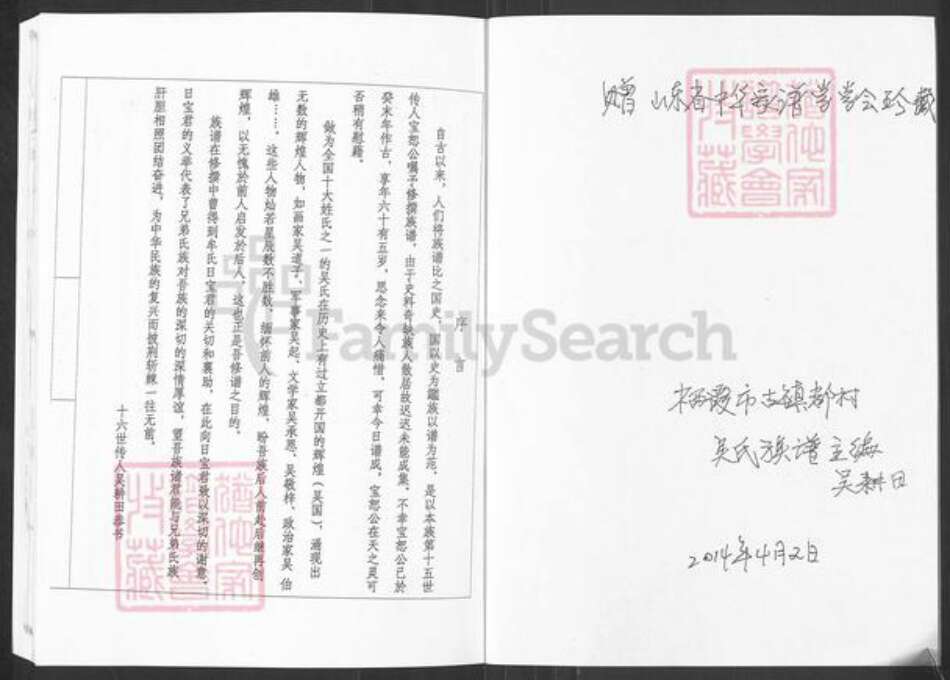 赠 山东省中华家谱学学会珍藏
栖霞市古镇都村
吴氏族谱主编
吴耕田
2014年4月2日
序言
自古以来,人们将族谱比之国史,国以史为鑑族以谱为范,是以本族第十五世
传人宝恕公嘱予修撰族谱,由于史料奇缺族人散居故迟迟未能成集,不幸宝恕公已於
癸未年作古,享年六十有五岁,思念来令人痛惜,可幸今日谱成,宝恕公在天之灵可
否稍有慰藉。
做为全国十大姓氏之一的吴氏在历史上有过立都开国的辉煌(吴国),涌现出
无数的辉煌人物,如画家吴道子、军事家吴起、文学家吴承恩、吴敬梓、政治家吴 伯
雄……,这些人物灿若星辰数不胜数,缅怀前人的辉煌,盼吾族后人前赴后继再创
辉煌,以无愧於前人启发於后人,这也正是吾修谱之目的。
族谱在修撰中曾得到牟氏日宝君的关切和襄助,在此向日宝君致以深切的谢意,
日宝君的义举代表了兄弟氏族对吾族的深切的深情厚谊,望吾族诸君能与兄弟氏族
肝胆相照团结奋进,为中华民族的复兴而披荆斩棘一往无前。
十六世传人吴耕田恭书
FamilySearch